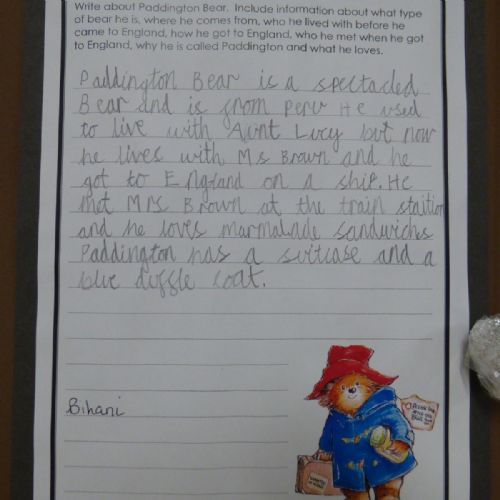 Write about Paddington Bear. Include information about what type
of bear he is, where he comes from, who he lived with before he
came to England, how he got to England, who he met when he got
to England, why he is called Paddington and what he loves.
Paddington Bear is a spectacled
Bear and is from peru He used
to live with Aunt Lucy but now
he lives with Ms Brown and he
got to England on a ship. He
met Mrs Brown at the train staition
and he loves marmalade sandwichs
Paddington has a suitcase and a
blue diffle coat.
Bihani